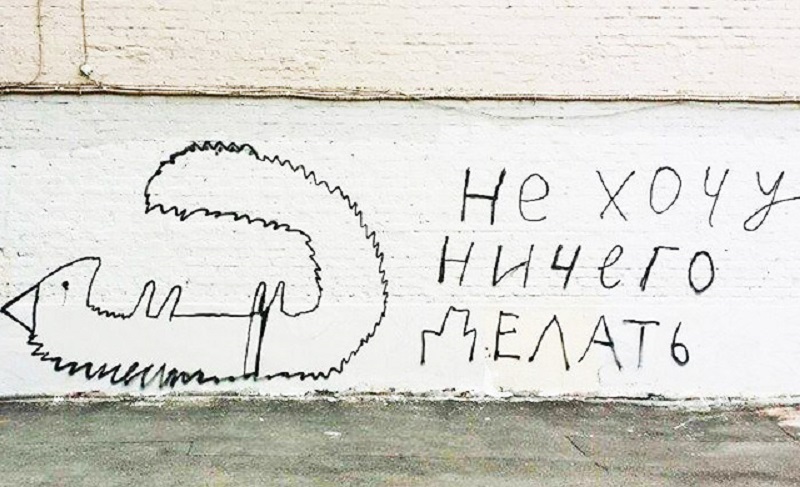 Не хочу
ничего
ДЕЛАТЬ